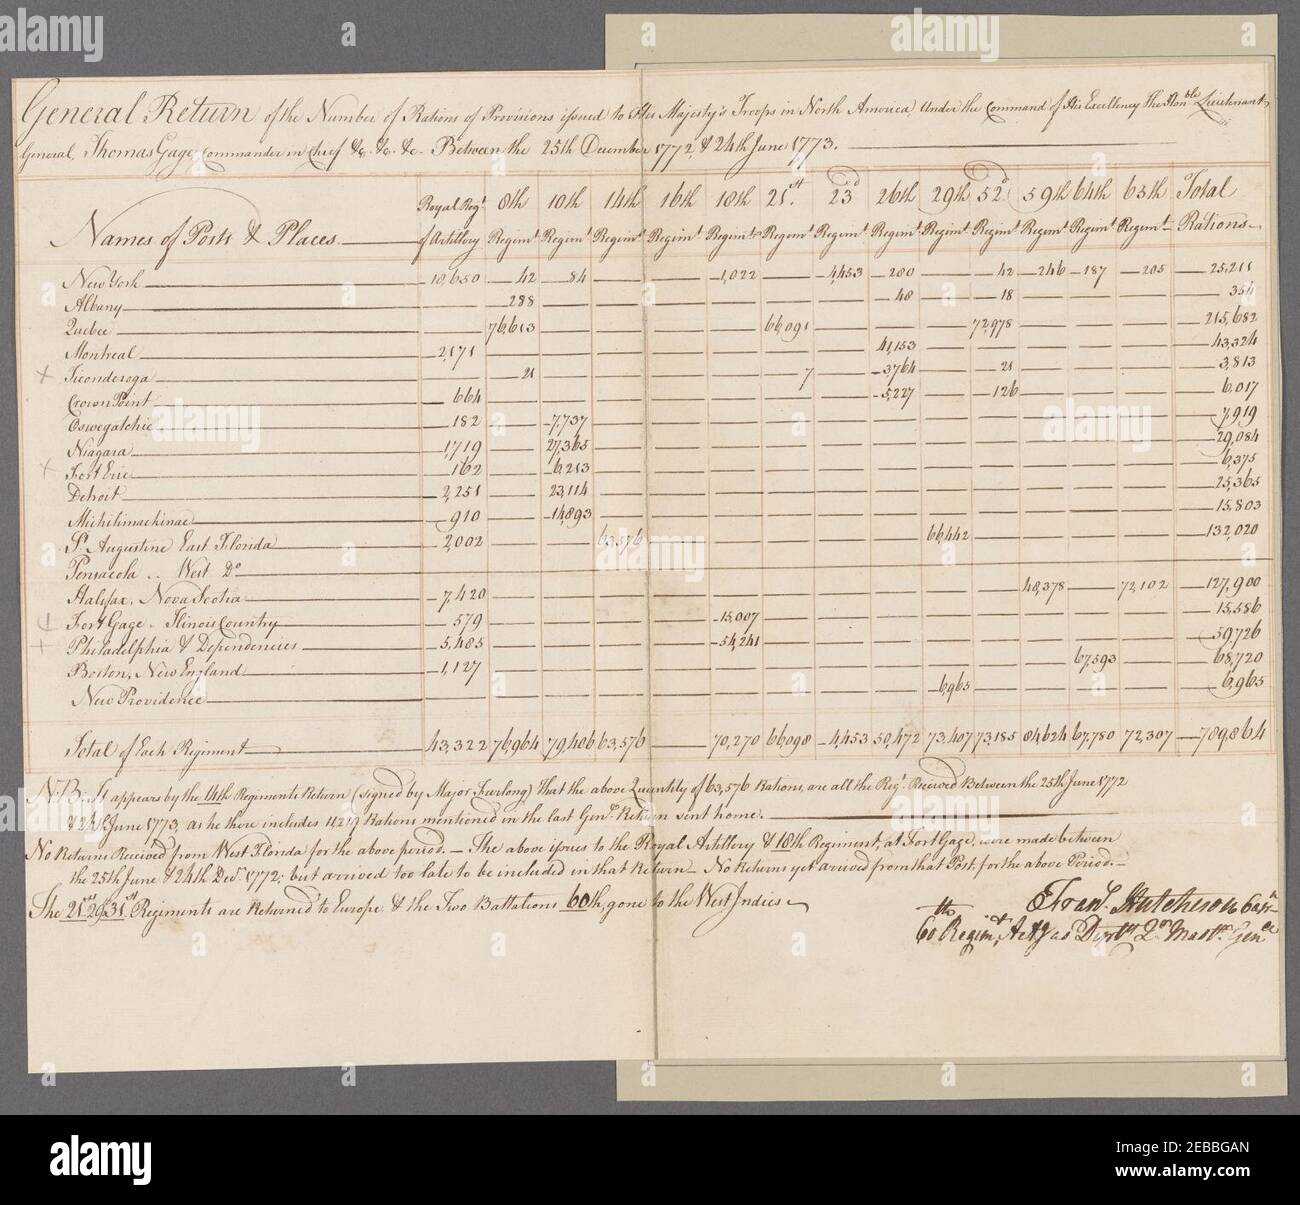 General Return of the Number of Rations of Provisions issued to His Majesty's Troops in North America, Under the Command of His Excellency The Honble. Lieutenant
General, Thomas Gage, Commander in Chief &c. &c. &c. Between the 25th December 1772, & 24th June 1773.
Names of Posts & Places Royal Regt. of Artillery 8th Regimt. 10th Regimt. 14th Regimt. 16th Regimt. 18th Regimt. 21st. Regimt. 23d Regimt. 26th Regimt. 29th Regimt. 52d. Regimt. 59th Regimt. 64th Regimt. 65th Regimt. Total Rations
New York 10,650 42 84 — — 1,022 — 4,453 280 — 42 246 187 205 25,211
Albany — 288 — — — — — — 48 — 18 — — — 354
Quebec — 76,613 — — — — 66,091 — — — 72,978 — — — 215,682
Montreal 2,171 — — — — — — — 41,153 — — — — — 43,324
+ Ticonderoga — 21 — — — — 7 — 3,764 — 21 — — — 3,813
Crown Point 664 — — — — — — — 5,227 — 126 — — — 6,017
Oswegatchie 182 — 7,737 — — — — — — — — — — — 7,919
Niagara 1,719 — 27,365 — — — — — — — — — — — 29,084
+ Fort Erie 162 — 6,213 — — — — — — — — — — — 6,375
Detroit 2,251 — 23,114 — — — — — — — — — — — 25,365
Michilimackinac 910 — 14,893 — — — — — — — — — — — 15,803
St. Augustine East Florida 2,002 — — 63,576 — — — — — 66,442 — — — — 132,020
Pensacola .. West Do.
Halifax, Nova Scotia 7,420 — — — — — — — — — — 48,378 — 72,102 127,900
+ Fort Gage - Ilinois Country 579 — — — — 15,007 — — — — — — — — 15,586
+ Philadelphia & Dependencies 5,485 — — — — 54,241 — — — — — — — — 59,726
Boston, New England 1,127 — — — — — — — — — — — 67,593 — 68,720
New Providence — — — — — — — — — 6,965 — — — — 6,965
Total of Each Regiment 43,322 76,964 79,406 63,576 — 70,270 66,098 4,453 50,472 73,407 73,185 84,624 67,780 72,307 789,864
N:B: It appears by the 14th Regiments Return (signed by Major Furlong) That the above Quantity of 63,576 Rations, are all the Regt. Received Between the 25th June 1772
& 24th June 1773, as he there includes 11,219 Rations mentioned in the last Genl. Return sent home.
No Returns Received from West Florida for the above period. — The above issues to the Royal Artillery & 18th Regiment, at Fort Gage, were made between
the 25th June & 24th Decr. 1772; but arrived too late to be included in that Return — No Return yet arrived from that Post, for the above Period. —
The 21st 29th 31st Regiments are Returned to Europe, & the Two Battalions 60th, gone to the West Indies
Frans. Hutcheson Captn.
60th Regimt, Actg as Depty Qr Mastr. Genl.
alamy
a
a
a
a
alamy
Image ID: 2EBBGAN
www.alamy.com